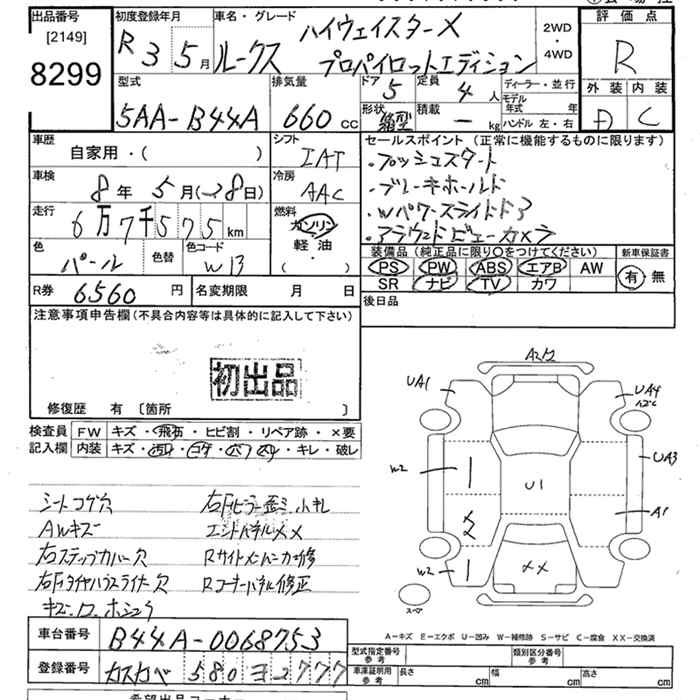 出品番号 [2149] 8299
初度登録年月 R3 5月
車名・グレード ルークス ハイウェイスターX プロパイロットエディション
2WD ・ 4WD
評価点 R
外装 内装 D C
型式 5AA-B44A
排気量 660 cc
ドア 5 定員 4 人
形状 箱型 積載 - kg
ディーラー・並行
モデル年式 年
ハンドル 左・右
車歴 自家用・( )
シフト IAT
車検 8年 5月 (28日)
冷房 AAC
走行 6万7千575 km
燃料 ガソリン 軽油 ( ・ )
色 パール 色替 色コード W13
セールスポイント (正常に機能するものに限ります)
・プッシュスタート
・ブレーキホールド
・Wパワースライドドア
・アラウンドビューカメラ
装備品 (純正品に限り○をつけてください)
新車保証書
PS PW ABS エアB AW
SR ナビ TV カワ
有 無
R券 6560 円 名変期限 月 日
後日品
注意事項申告欄 (不具合内容等は具体的に記入して下さい)
初出品
修復歴 有 [箇所 ]
検査員 記入欄
FW キズ・飛石・ヒビ割・リペア跡・×要
内装 キズ・汚れ・コゲ・穴・キレ・破レ
シートコゲ穴
AWキズ
右ステップカバー穴
右Fタイヤハウスライナー穴
右Fピラー歪ミ小キレ
エンドパネルXX
Rサイドメンバー修
Rコーナーパネル修正
A2/2
UA1
UA4
UA3
W2
U1
A1
XX
W2
XX
スペア
A-キズ E-エクボ U-凹み W-補修跡 S-サビ C-腐食 XX-交換済
車台番号 B44A-0068753
登録番号 カスカベ 580 ヨ 2777
型式指定番号 参考
類別区分番号 参考
車庫証明用 参考 長さ cm 幅 cm 高さ cm
希望出品コーナー